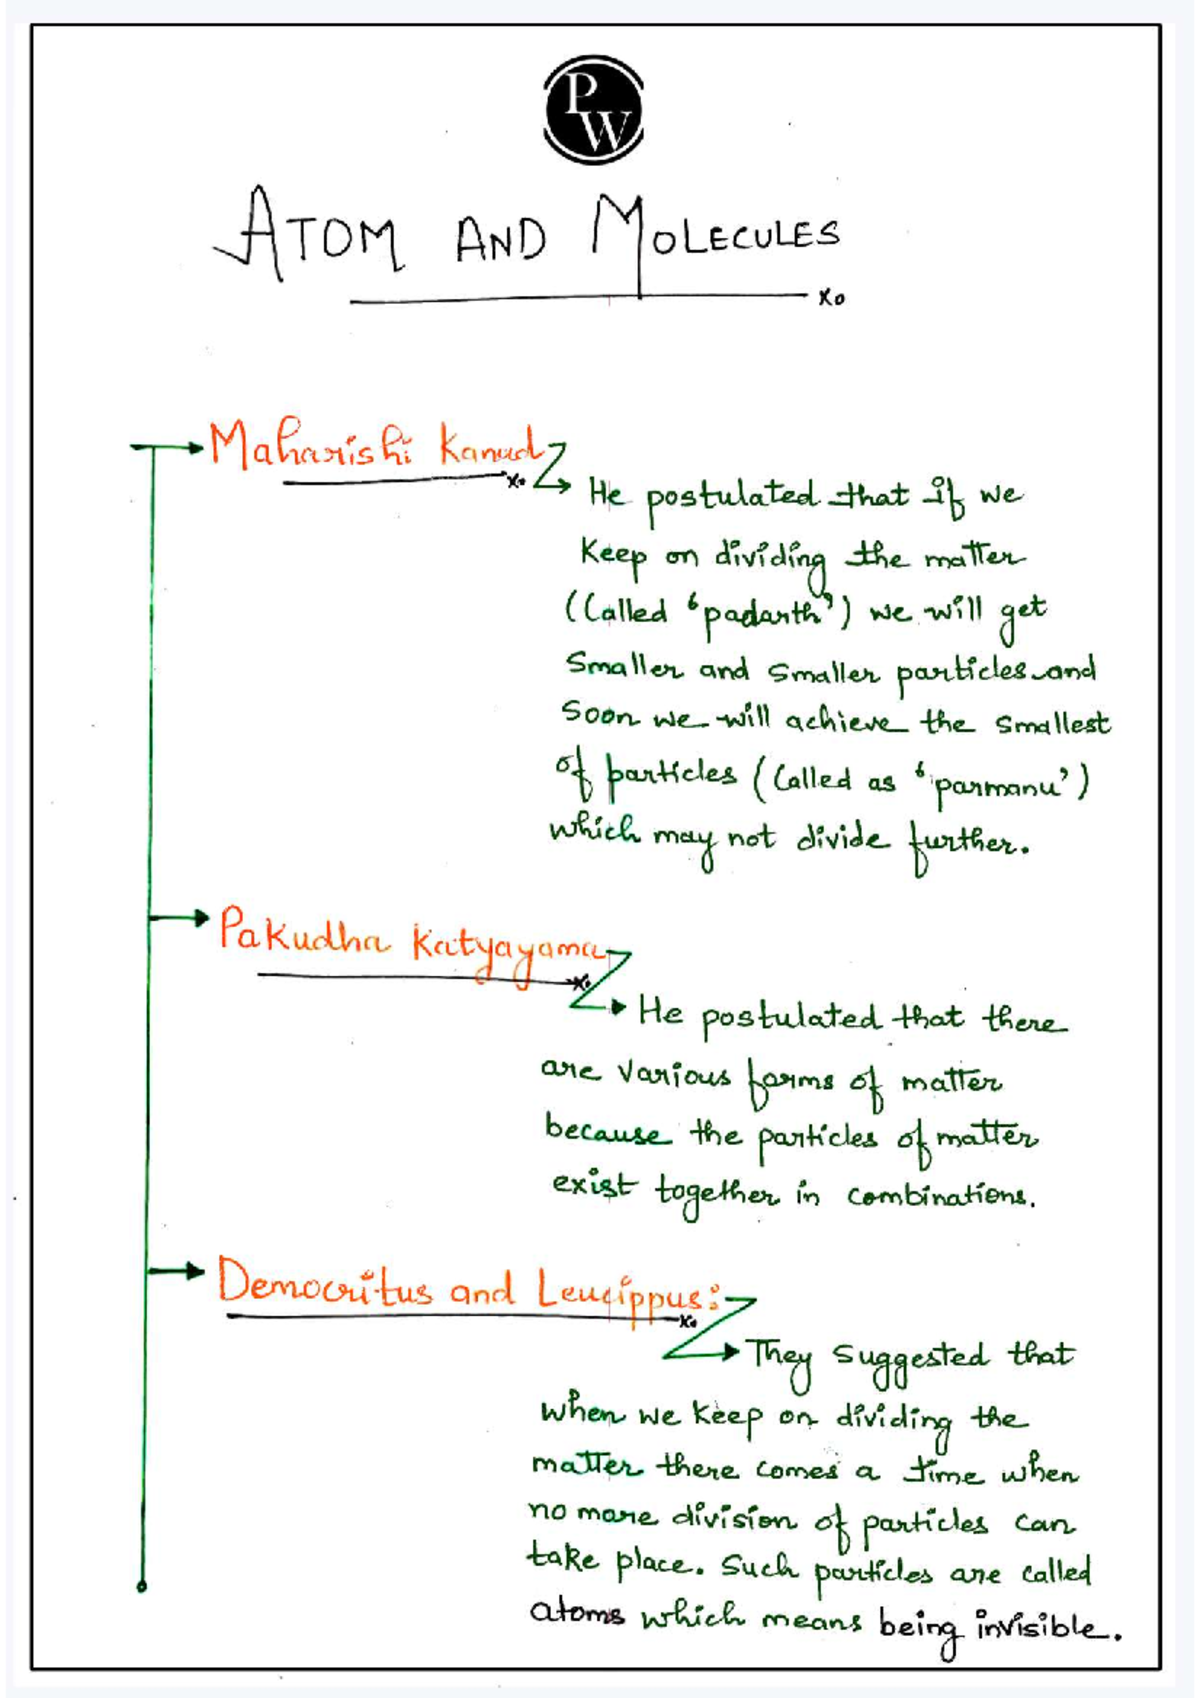 PW
ATOM AND MOLECULES
xo
Maharishi Kanud
He postulated that if we
Keep on dividing the matter
(Called 'padarth') we will get
Smaller and smaller particles and
Soon we will achieve the smallest
of particles (Called as 'parmanu')
which may not divide further.
Pakudha Katyayama
He postulated that there
are various forms of matter
because the particles of matter
exist together in combinations.
Democritus and Leucippus:
They suggested that
when we keep on dividing the
matter there comes a time when
no more division of particles can
take place. Such particles are called
atoms which means being invisible.